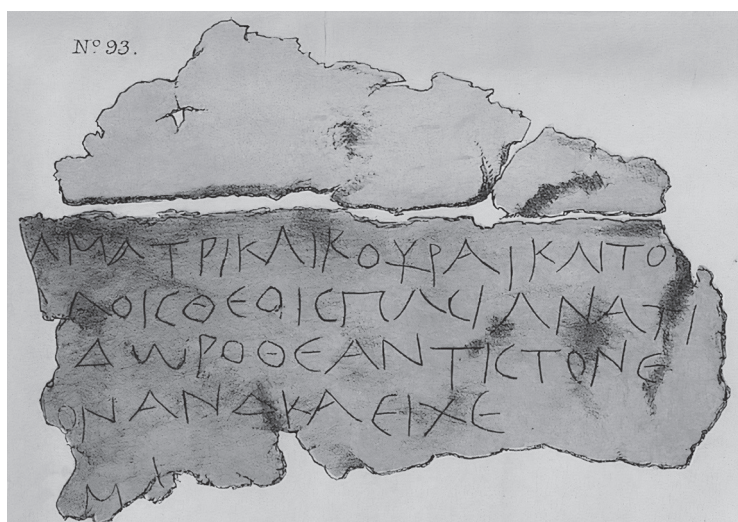 ΑΜΑΤΡΙΚΑΙΚΟΥΡΑΙΚΑΙΤΟ
ΛΟΙϹΘΕΟΙϹΠΑϹΙΑΝΑΤΙ
ΔΩΡΟΘΕΑΝΤΙϹΤΟΝΕ
ΟΝΑΝΔΚΑΕΙΧΕ
ΜΙ
Nº 93.